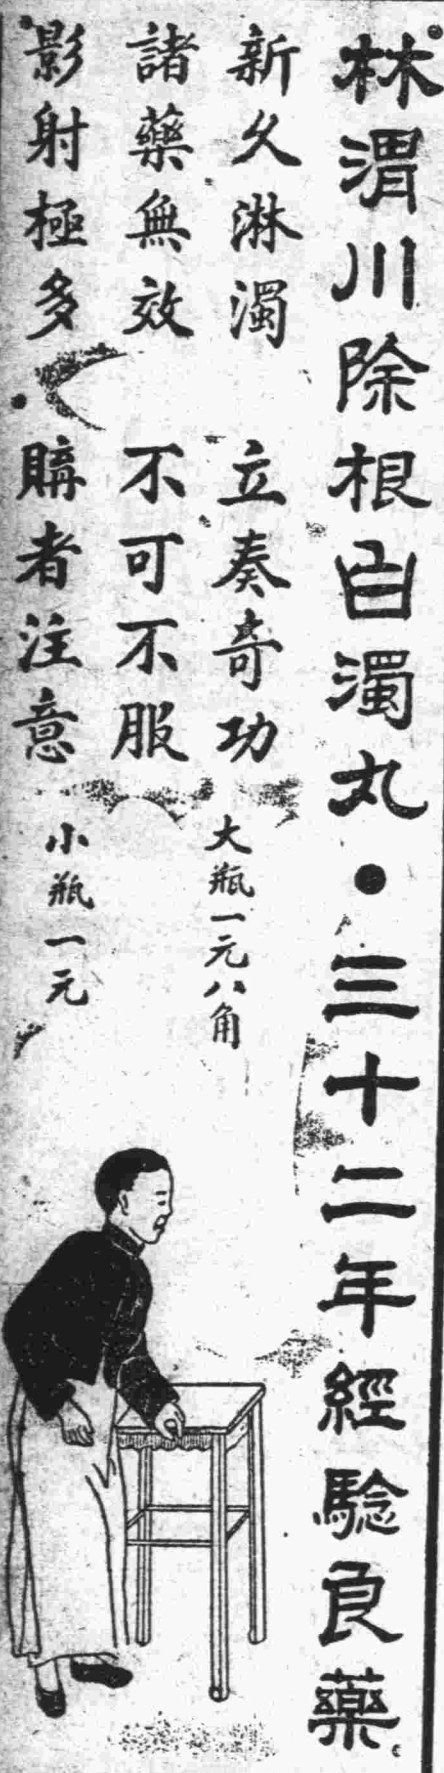 林渭川除根白濁丸・三十二年經驗良藥
新久淋濁　立奏奇功
大瓶一元八角
諸藥無效　不可不服
影射極多　購者注意
小瓶一元